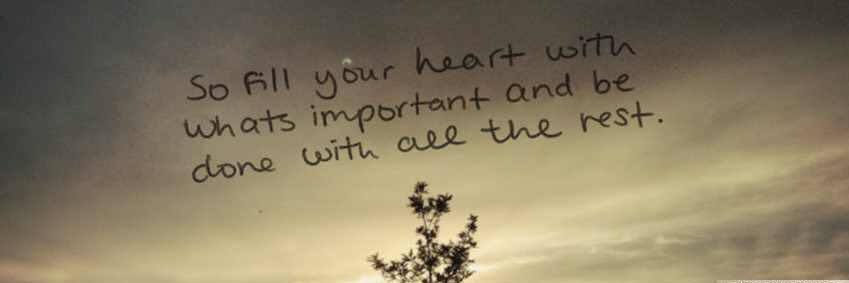 So fill your heart with
whats important and be
done with all the rest.